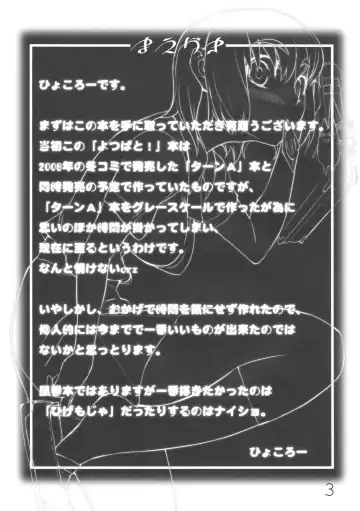 まえがき
ひょころーです。
まずはこの本を手に取っていただき有難うございます。
当初この「よつばと！」本は
2008年の冬コミで発売した「ターンA」本と
同時発売の予定で作っていたものですが、
「ターンA」本をグレースケールで作ったが為に
思いのほか時間が掛かってしまい、
現在に至るというわけです。
なんと情けないorz
いやしかし、おかげで時間を気にせず作れたので、
個人的には今までで一番いいものが出来たのでは
ないかと思っとります。
本ではありますが一番描きたかったのは
「ひげもじゃ」だったりするのはナイショ。
ひょころー
3